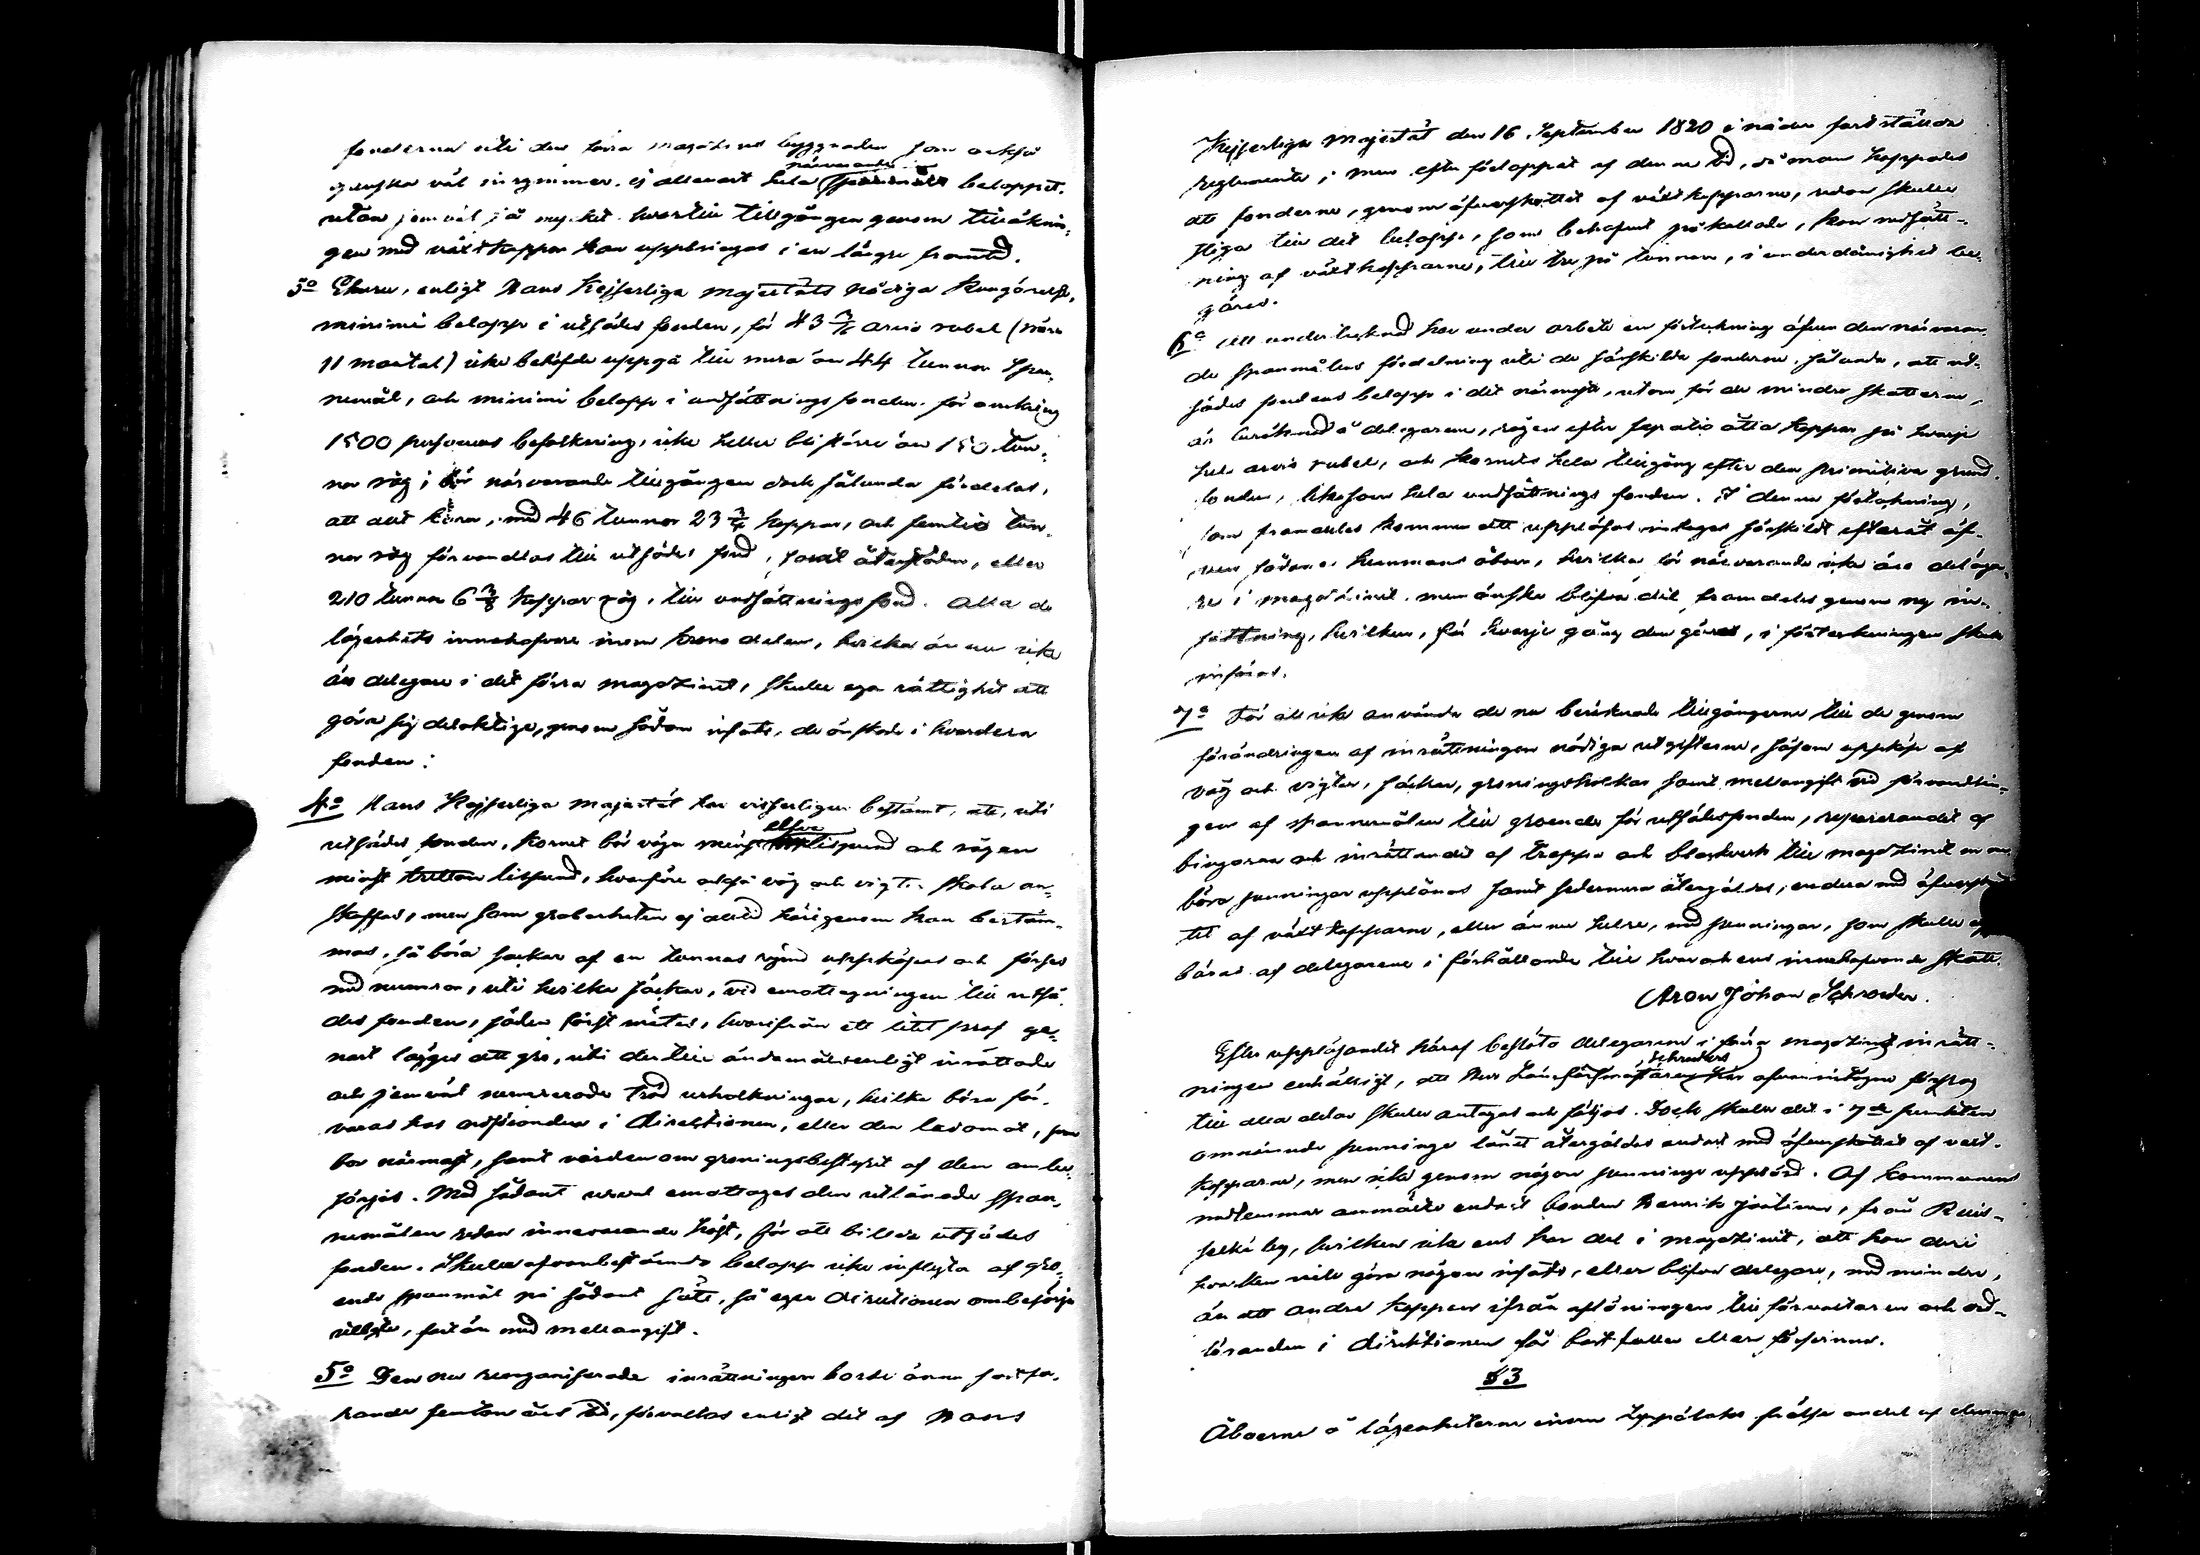 fonderna uti den förra magazins byggnaden som också
ganska väl inrymmer, ej allenast hela närvarande beloppet,
utan jemväl så mycket, hvartill tillgången genom tilläknin-
gen med växtkappar kan uppbringas i en längre framtid.
3o Ehuru, enligt Hans Kejserliga Majestäts Nådiga Kungörelse,
minimi belopp i utsädes fonden, för 43 3/4 arvio rubel (nära
11 mantal) icke behöfde uppgå till mera än 44 tunnor span-
nemål, och minimi belopp i undsättningsfonden för omkring
1500 personers befolkning, icke heller blifva större än 150 tun-
nor råg; bör närvarande tillgången dock sålunda fördelas,
att allt korn, med 46 tunnor 23 3/4 kappar, och femtio tun-
nor råg förvandlas till utsädes fond, samt återstoden, eller
210 tunnor 6 3/8 kappar råg, till undsättningsfond. Alla de
lägenhets innehafvare inom krono delen, hvilka ännu icke
äro delegare i det förra magazinet, skulle ega rättighet att
göra sig delaktige, genom sådan insats, de önskade i hvardera
fonden:
4o Hans Kejserliga Majestät har visserligen bestämt, att, uti
utsädes fonden, kornet bör väga minst elfva lispund och rågen
minst tretton lispund, hvarföre också våg och vigter skola an-
skaffas, men som grobarheten ej alltid härigenom kan bestäm-
mas, så böra säckar af en tunnas rymd uppköpas och förses
med numror, uti hvilka säckar, vid emottagningen till utsä-
des fonden, säden först mätes, hvarifrån ett litet prof ge-
nast lägges att gro, uti dertill ändamålsenligt inrättade
och jemväl numrerade träd urholkningar, hvilka böra för-
varas hos ordföranden i Direktionen, eller den ledamot, som
bor närmast, samt vården om groningsbestyret af den ombe-
sörjes. Med sådant urval emottages den utlånade span-
nemålen redan innevarande höst, för att bilda utsädes
fonden. Skulle ofvanbestämda belopp icke inflyta af gro-
ende spanmål på sådant sätt, så eger Direktionen ombesörja
utbyte, fast än med mellangift.
5o Den nu reorganiserade inrättningen borde ännu fortfa-
rande femton års tid, förvaltas enligt det af Hans
Kejserliga Majestät den 16 September 1820 i nåder fastställda
reglemente; men efter förloppet af denna tid, då man hoppades
att fonderne, genom öfverskottet af växtkapparne, redan skulle
stiga till det belopp, som behofvet påkallade, kan nedsätt-
ning af växtkapparne, till tre på tunnan, i underdånighet be-
gäras.
6o Att undertecknad har under arbete en förteckning öfver den närvaran-
de spanmålens fördelning uti de särskilda fonderne, sålunda, att ut-
sädes fondens belopp i det närmaste, utom för de mindre skatterne,
är beräknad å delegarene, rågen efter sextio åtta kappar på hvarje
hel arvio rubel, och kornets hela tillgång efter den primitiva grund-
fonden, likasom hela undsättnings fonden. I denna förteckning,
som framdeles kommer att uppläsas, intages särskildt efteråt äf-
ven sådane hemmans åboer, hvilka för närvarande icke äro deläga-
re i magazinet, men önska blifva det framdeles genom ny in-
sättning, hvilken, för hvarje gång den göres, i förteckningen skulle
införas.
7o För att icke använda de nu beräknade tillgångarne till de genom
förändringen af inrättningen nödiga utgifterne, såsom uppköp af
våg och vigter, säckar, groningsholkar samt mellangift vid förvandlin-
gen af spannemålen till groende för utsädesfonden, reparerandet af
bingarna och inrättandet af trappa och blockverk till magazinet m. m.
böra penningar upplånas samt sedermera återgäldas, endera med öfverskot-
tet af växtkapparne, eller ännu hellre, med penningar, som skulle
bäras af delegarene i förhållande till hvar och ens innehafvande skatt.
Aron Johan Schroeder.
Efter uppläsandet häraf beslöto delegarene i förra magazins inrätt-
ningen enhälligt, att Herr Länsförsmästaren Schroeders ofvanintagne förslag
till alla delar skulle antagas och följas. Dock skulle det i 7de punkten
omnämnde penninge lånet återgäldas endast med öfverskottet af växt-
kapparne, men icke genom någon pennings uppbörd. Af kommunens
medlemmar anmälte endast bonden Henrik Jortinen, från Ruis-
selki by, hvilken icke ens har del i magazinet, att han deri
hvarken ville göra någon insats, eller blifva delegare, med mindre,
än att andra kappen ifrån aflöningen till förvaltaren och ord-
föranden i Direktionen får bortfalla eller försvinna.
§ 3
Åboerne å lägenheterne inom Ippolatis frälse andel af denna